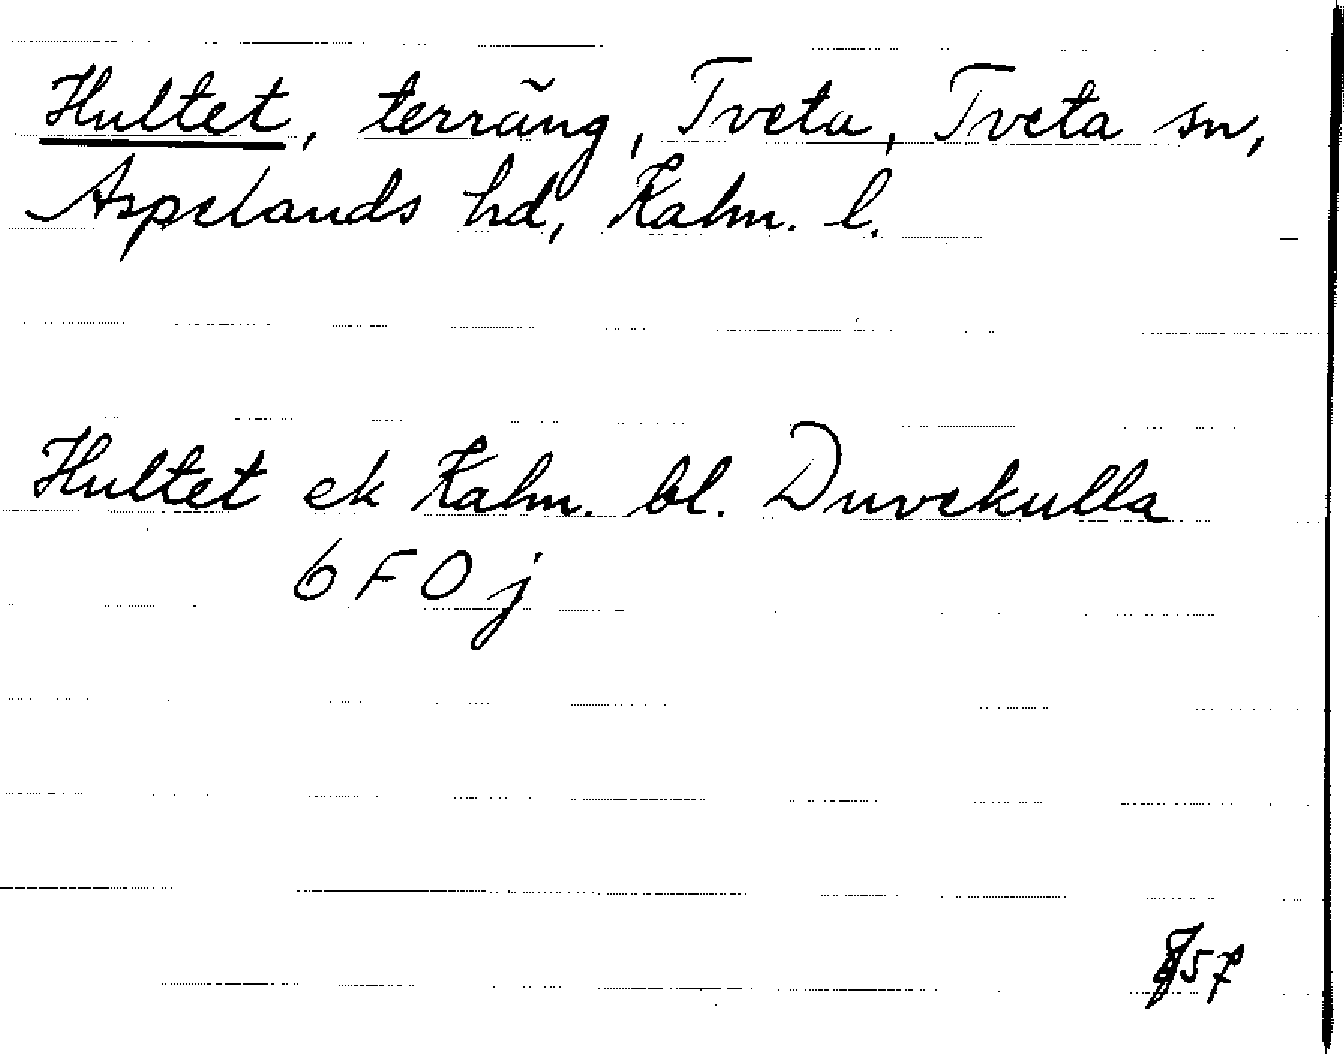 Hultet, terräng, Tveta, Tveta sn,
Aspelands hd, Kalm. l.
Hultet ek Kalm. bl. Duvekulla
6 F 0 j
57